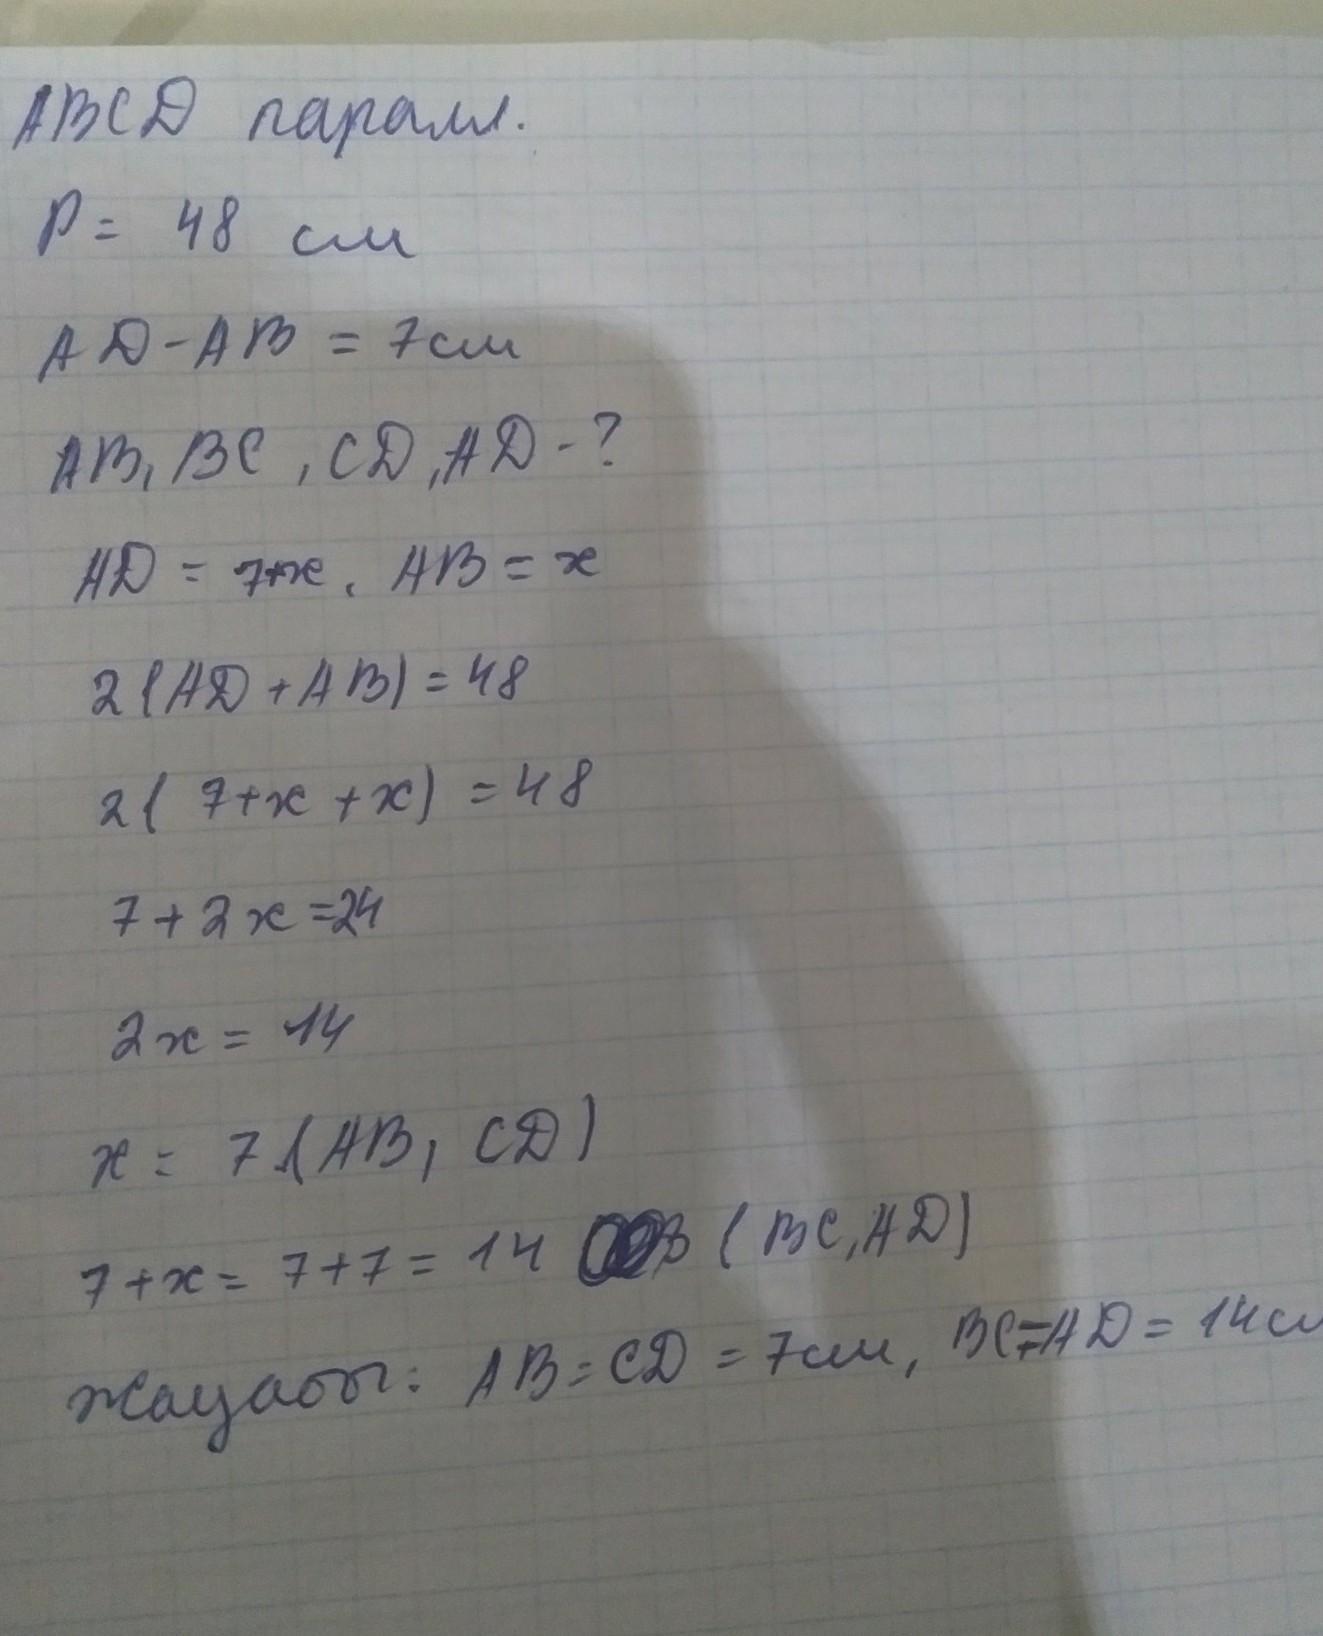 ABCD паралл.
P = 48 см
AD - AB = 7см
AB, BC, CD, AD - ?
AD = 7+x, AB = x
2(AD + AB) = 48
2( 7+x + x) = 48
7 + 2x = 24
2x = 14
x = 7 (AB, CD)
7 + x = 7 + 7 = 14 (BC, AD)
Жауабы: AB = CD = 7см, BC = AD = 14см